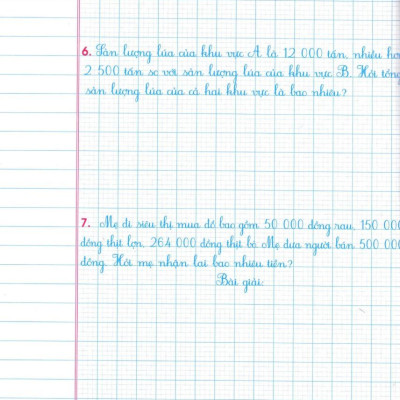 6. Sản lượng lúa của khu vực A là 12 000 tấn, nhiều hơ
2 500 tấn so với sản lượng lúa của khu vực B. Hỏi tổng
sản lượng lúa của cả hai khu vực là bao nhiêu?
7. Mẹ đi siêu thị mua đồ bao gồm 50 000 đồng rau, 150 000
đồng thịt lợn, 264 000 đồng thịt bò. Mẹ đưa người bán 500 000
đồng. Hỏi mẹ nhận lại bao nhiêu tiền?
Bài giải: